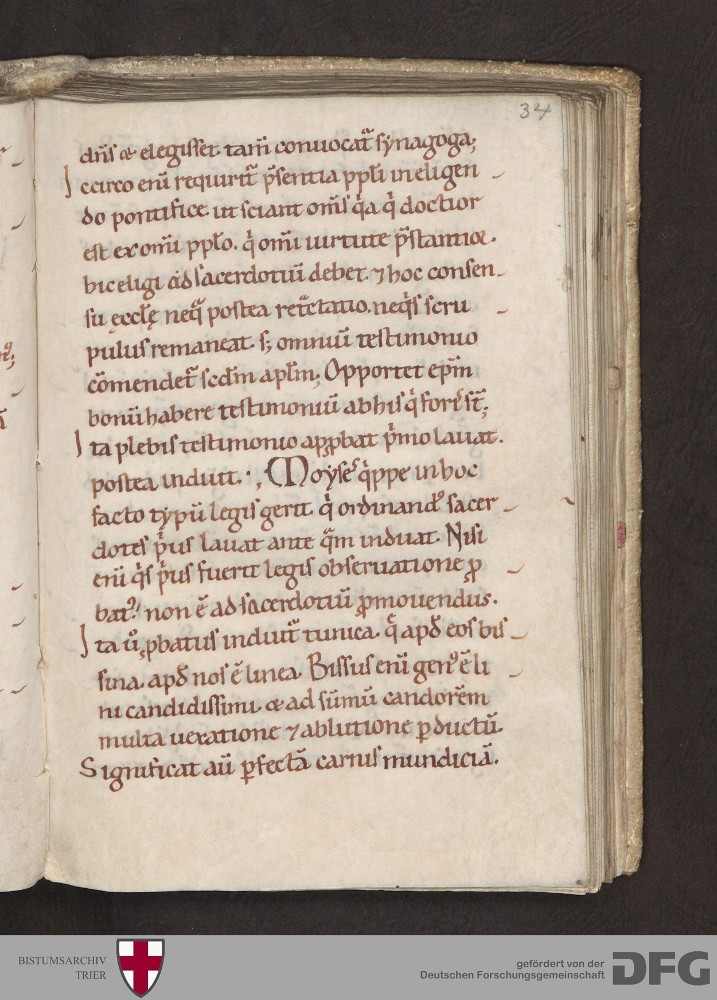 34
dn̄s & elegisset. tam̄ conuocat᷒ synagoga;
Iccirco enī requirit᷒ p̄sentia pp̄li in eligen
do pontifice. ut sciant om̄s q̇a q̇ doctior
est ex om̄i pp̄lo. q̇ om̄i uirtute p̄stantior.
hic eligi ad sacerdotiū debet. ⁊ hoc consen
su ęccl̄ę neq̄ postea ret̄ctatio. neq̇s scru
pulus remaneat. s; omniū testimonio
cōmendet᷒ scd̄m apl̄m; Opportet ep̄m
bonū habere testimoniū ab his q̇ foris st̄;
Ita plebis testimonio app̱bat ṗmo lauat.
postea induit. Moyses q̇ppe in hoc
facto typū legis gerit q̇ ordinandꝰ sacer
dotes ṗus lauat ante q̄m induat. Nisi
enī q̇s ṗus fuerit legis obseruatione ꝓ
batꝰ. non ē ad sacerdotiū ꝓmouendus.
Ita u̇ ꝓbatus induit᷒ tunica. q̄ apd̄ eos bis
sina. apd̄ nos ē linea. Bissus enī genꝰ ē li
ni candidissimi. & ad sūmū candorēm
multa uexatione ⁊ ablutione ꝑductū.
Significat aū ꝑfectā carnis mundiciā.
BISTUMSARCHIV
TRIER
gefördert von der
Deutschen Forschungsgemeinschaft
DFG